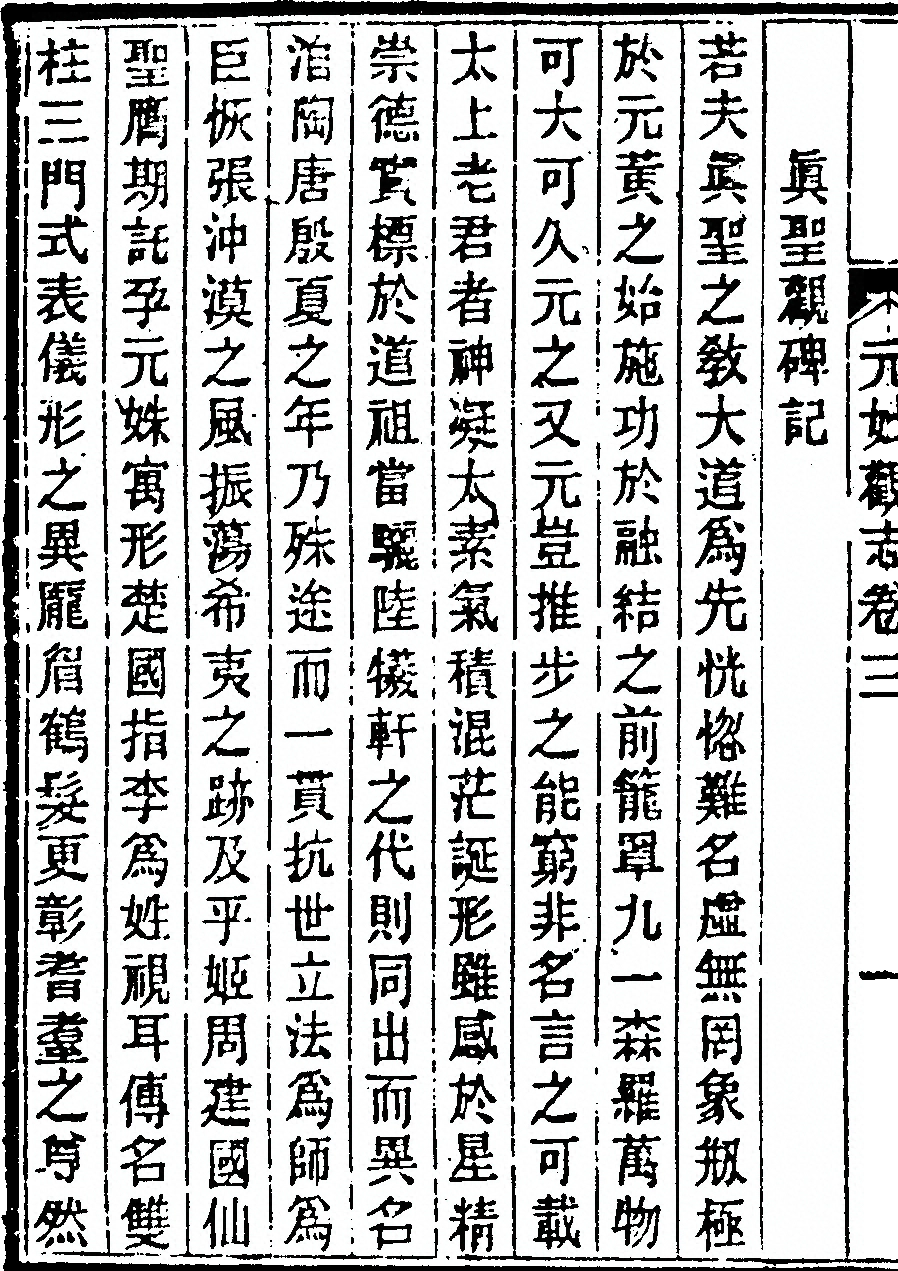 元妙觀志卷三
一
眞聖觀碑記
若夫眞聖之教大道爲先恍惚難名虛無罔象剏極
於元黃之始施功於融結之前籠罩九一森羅萬物
可大可久元之又元豈推步之能窮非名言之可載
太上老君者神凝太素氣積混茫誕形雖感於星精
崇德實標於道祖當驪陸犧軒之代則同出而異名
洎陶唐殷夏之年乃殊途而一貫抗世立法爲師爲
臣恢張沖漠之風振蕩希夷之跡及乎姬周建國仙
聖膺期託孕元姝寓形楚國指李爲姓視耳傳名雙
柱三門式表儀形之異龎眉鶴髮更彰耆耋之尊然